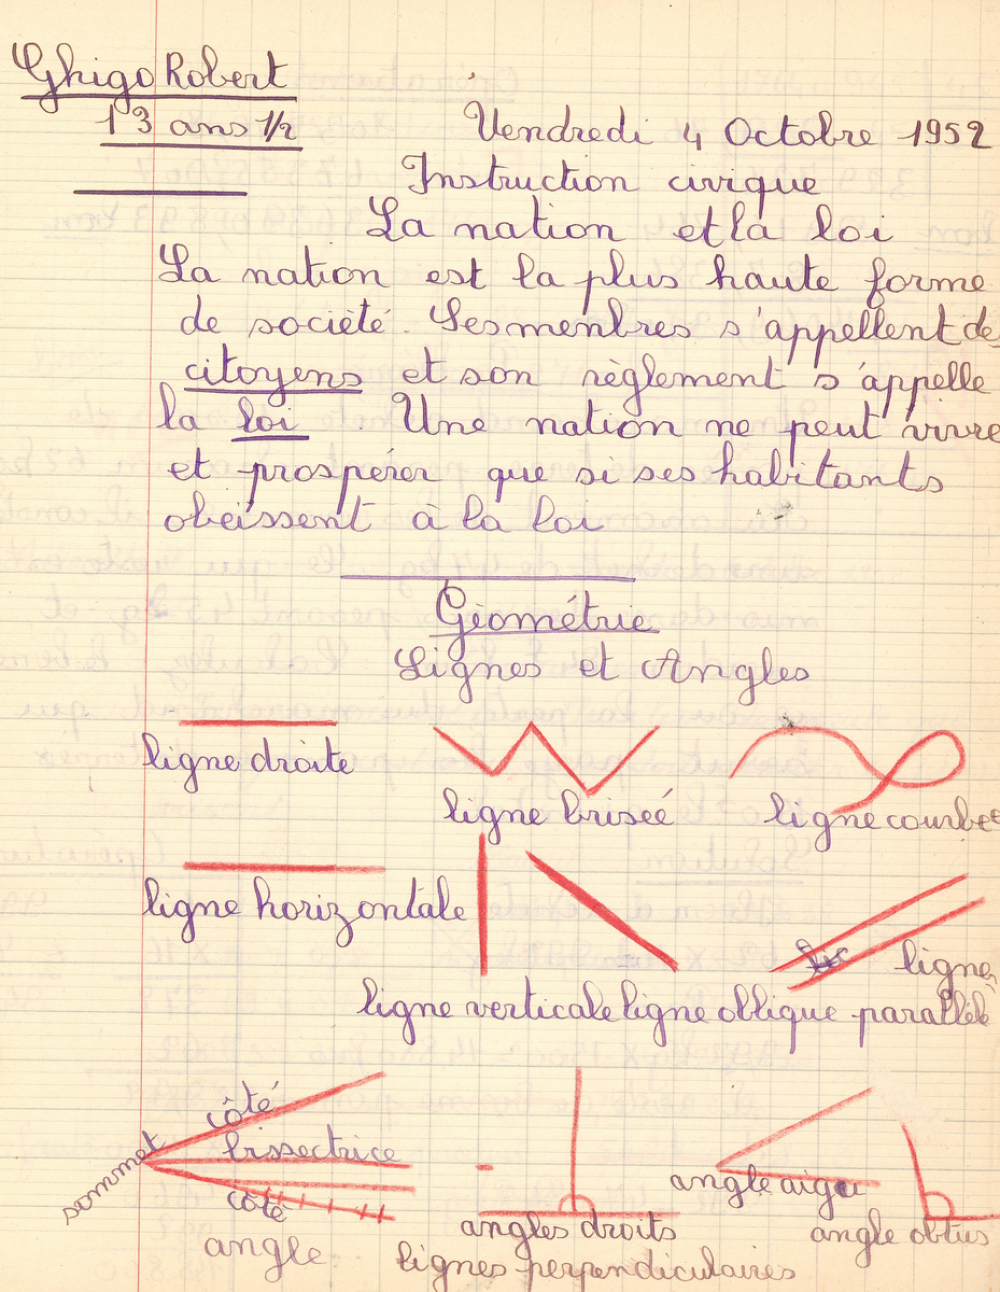 Ghigo Robert
13 ans 1/2
Vendredi 4 Octobre 1952
Instruction civique
La nation et la loi
La nation est la plus haute forme
de société. Ses menbres s'appellent des
citoyens et son règlement s'appelle
la loi Une nation ne peut vivre
et prospérer que si ses habitants
obeissent à la loi
Géométrie
Lignes et Angles
ligne droite
ligne briseé
ligne courbe
ligne horizontale
lignes
ligne verticale ligne oblique parallèle
côté
bissectrice
sommet
côté
angle
angles droits
lignes perpendiculaires
angle aigu
angle obtus